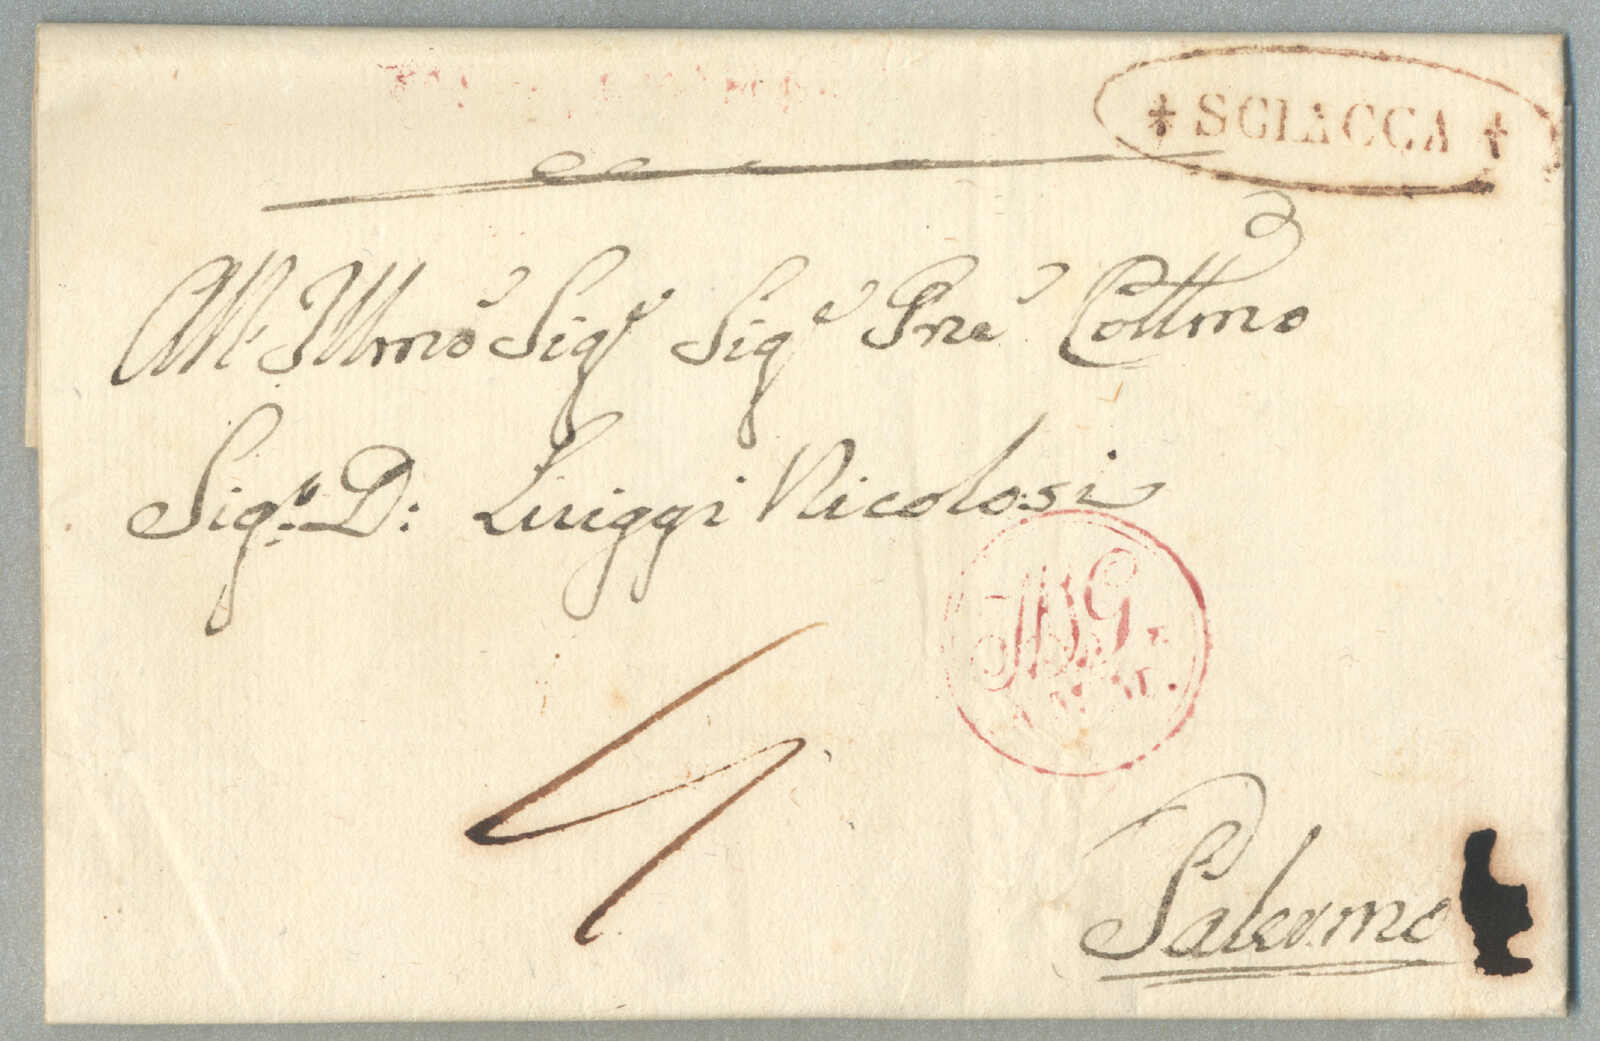 * SCIACCA *
All Illmo Sigr Sigr Pne Collmo
Sigr. D: Luiggi Nicolosi
4
Palermo